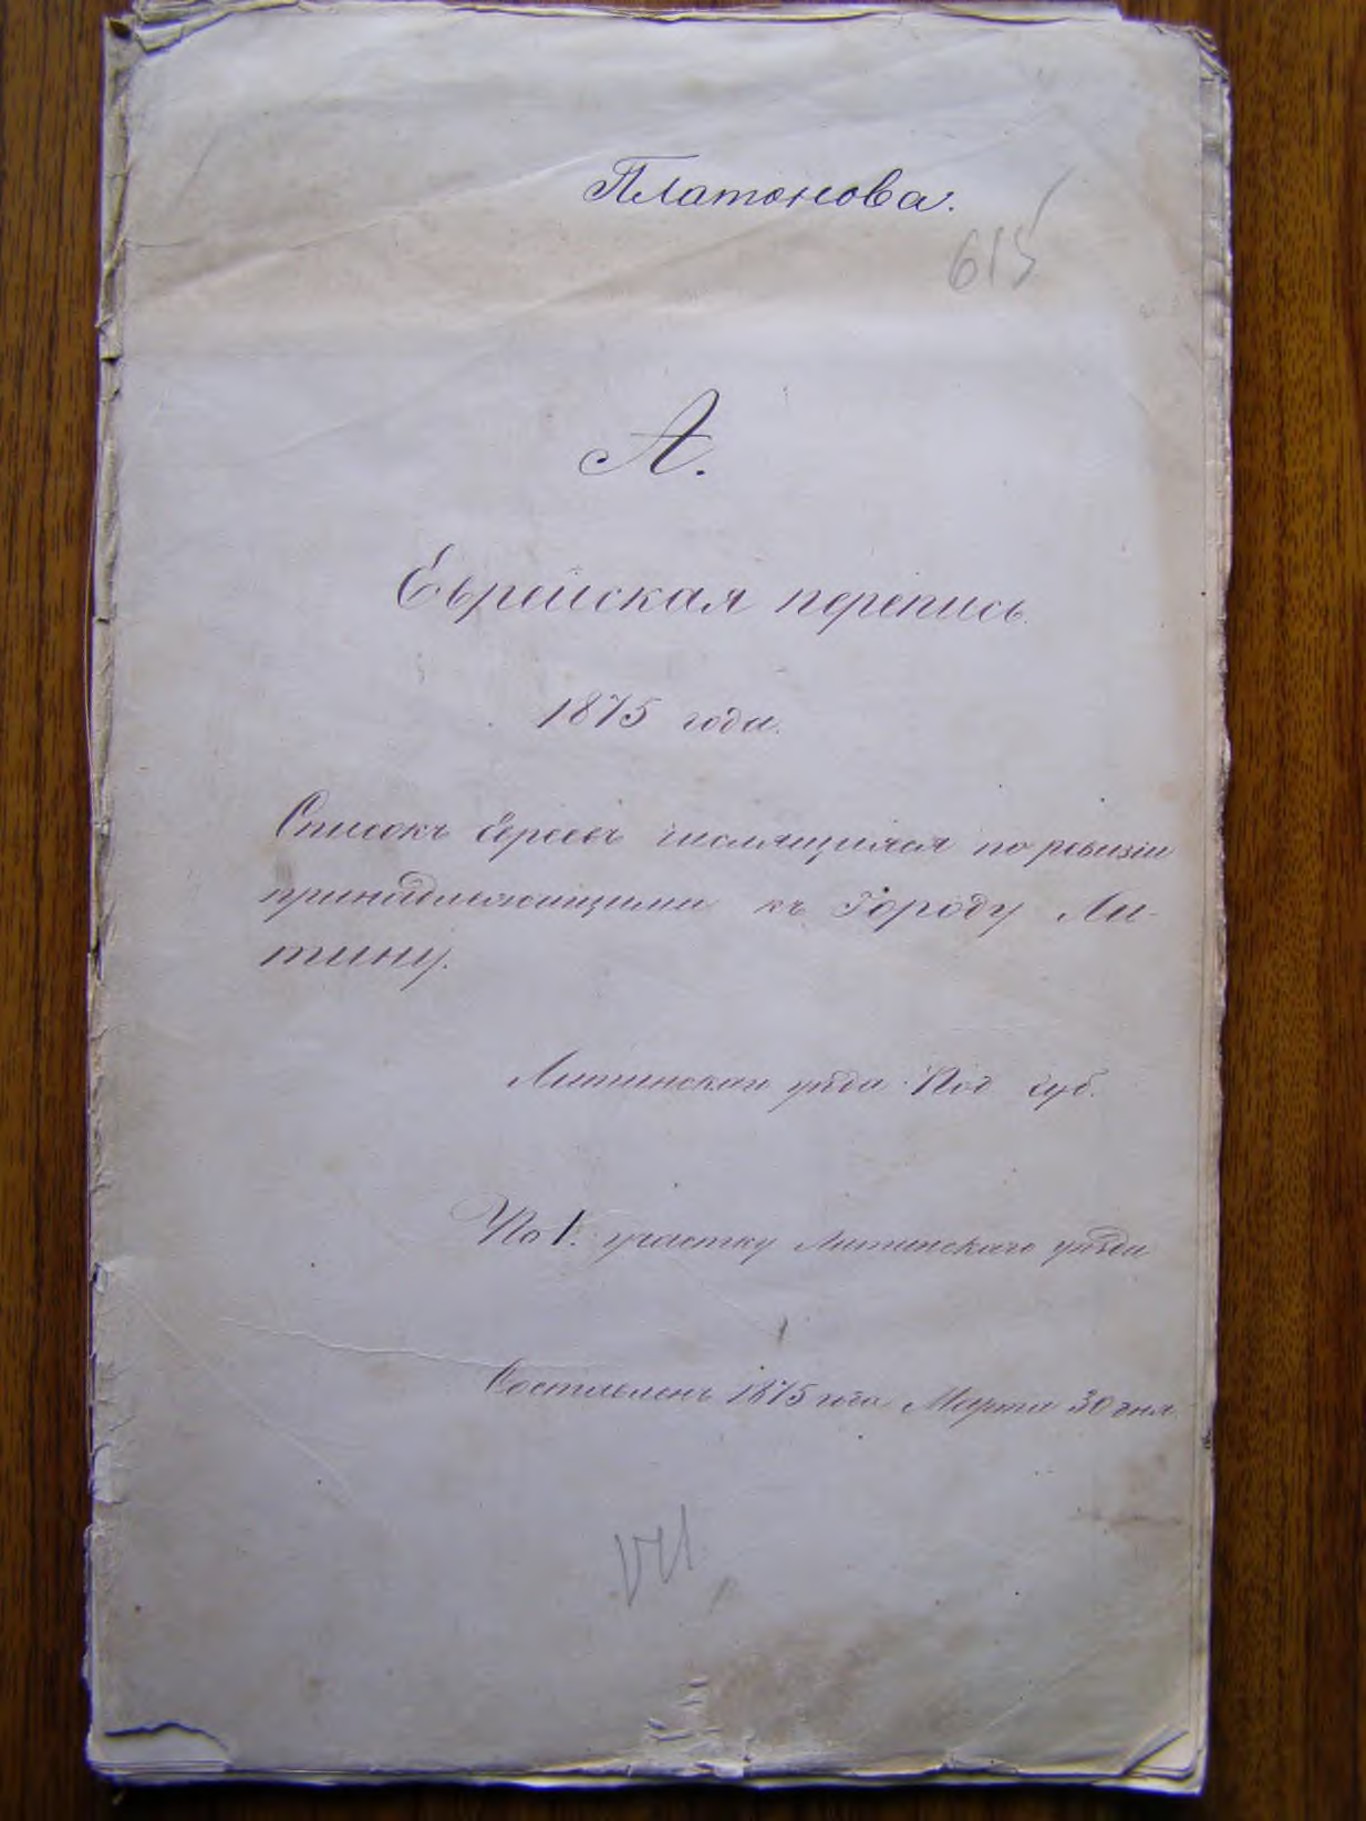 Платонова.
615
А.
Еврейская перепись.
1875 года.
Списокъ Евреевъ числящихся по ревизіи
принадлежащими къ Городу Ли-
тину.
Литинскаго уѣзда Под губ.
По 1. участку Литинскаго уѣзда
Составленъ 1875 года Марта 30 дня